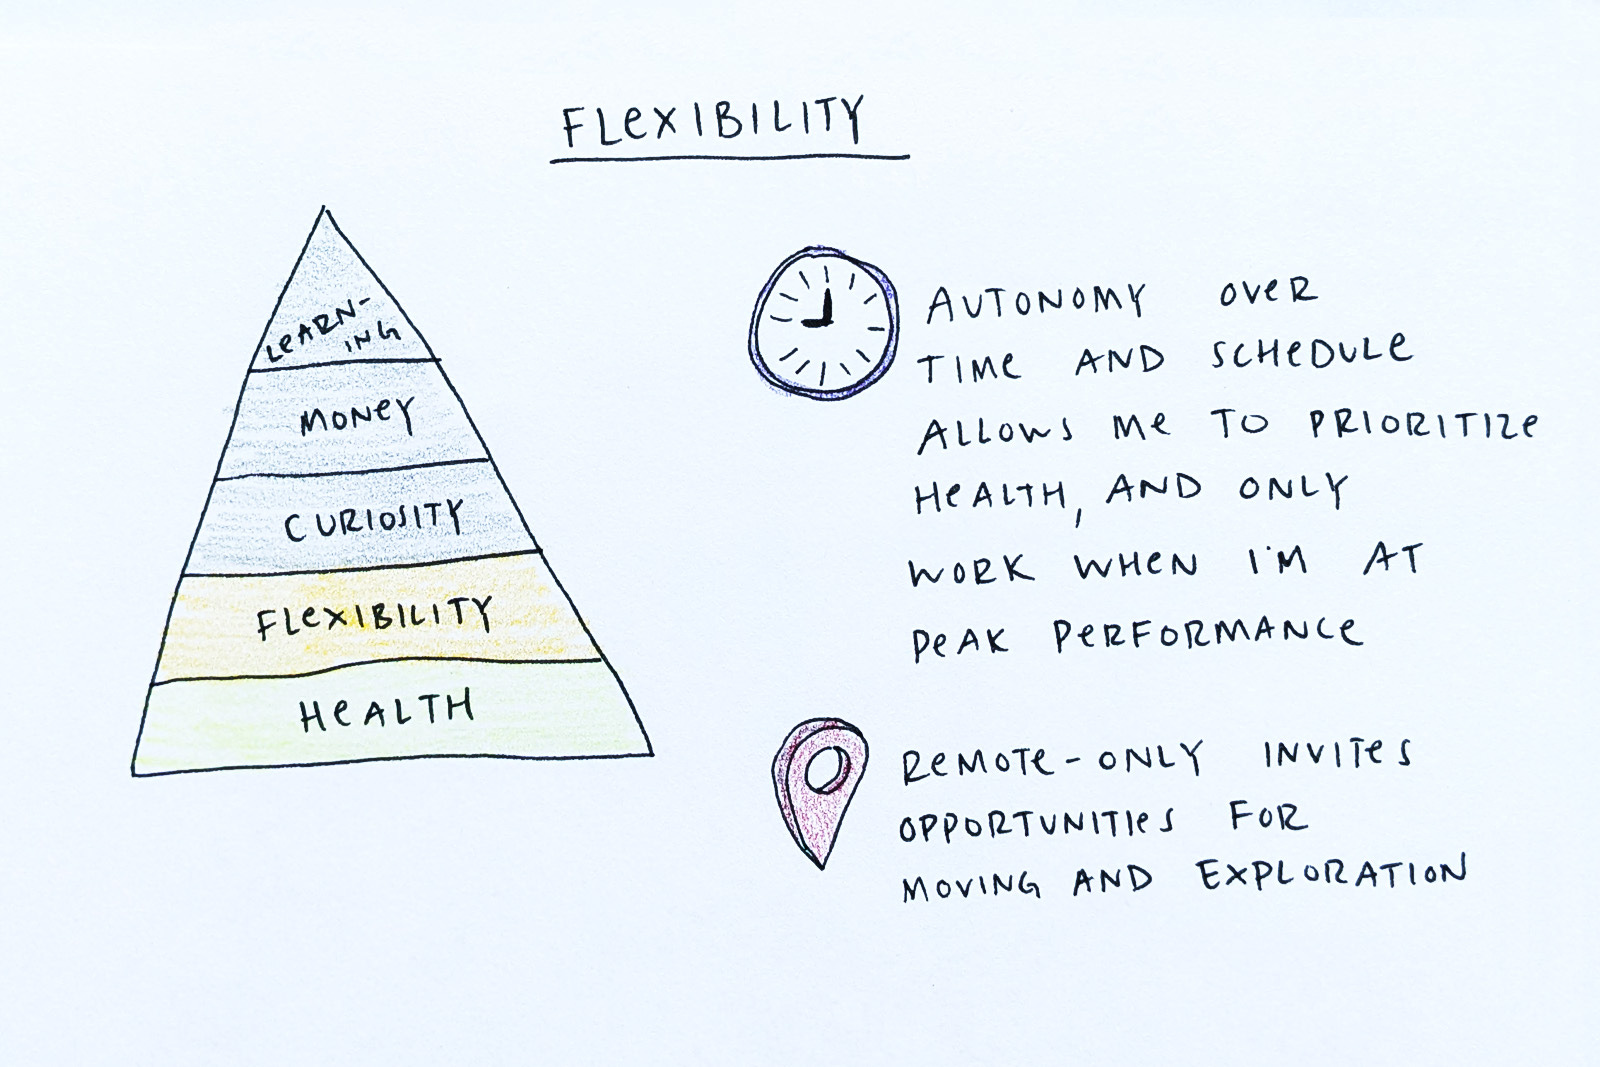 FLEXIBILITY
LEARN-
ING
MONEY
CURIOSITY
FLEXIBILITY
HEALTH
AUTONOMY OVER
TIME AND SCHEDULE
ALLOWS ME TO PRIORITIZE
HEALTH, AND ONLY
WORK WHEN I'M AT
PEAK PERFORMANCE
REMOTE-ONLY INVITES
OPPORTUNITIES FOR
MOVING AND EXPLORATION